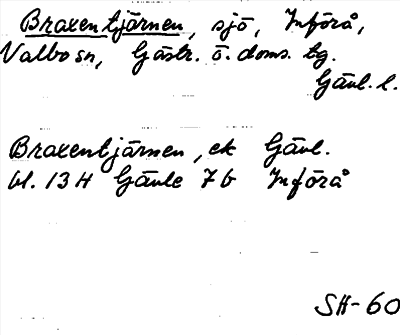 Braxentjärnen, sjö, Införå,
Valbo sn, Gästr. ö. doms. tg.
Gävl. l.
Braxentjärnen, ek Gävl.
bl. 13 H Gävle 7 b Införå
SH-60